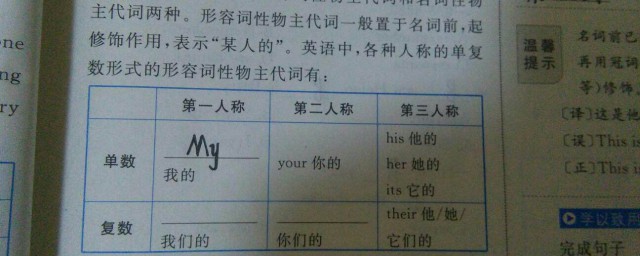 主代词两种。形容词性物主代词一般置于名词前,起
修饰作用,表示“某人的”。英语中,各种人称的单复
数形式的形容词性物主代词有:
第一人称 第二人称 第三人称
单数
My
我的
your 你的
his 他的
her 她的
its 它的
复数
我们的
你们的
their 他/她/
它们的
one
ng
ry
温馨
提示
名词前已
再用冠词
等)修饰。
〔译〕这是他
〔误〕This is
〔正〕This i
学以致用
完成句子